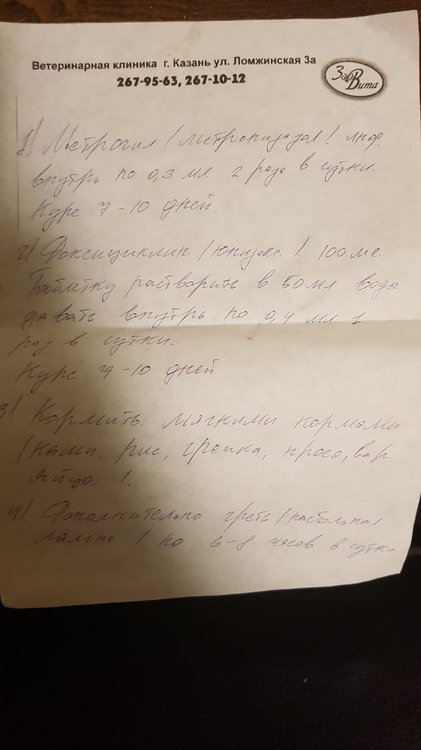 Ветеринарная клиника г. Казань ул. Ломжинская 3а
267-95-63, 267-10-12
Зоо Вита
1) Метрогил (метронидазол)
внутрь по 0,3 мл 2 раза в сутки.
Курс 7-10 дней.
2) Доксициклин (юнидокс) 100 мг.
Таблетку растворить в 50 мл воды
давать внутрь по 0,4 мл 1
раз в сутки.
Курс 7-10 дней
3) Кормить мягкими кормами
(каши, рис, гречка, просо, вар
яйцо.).
4) Дополнительно греть (настольная
лампа) по 6-8 часов в сутки